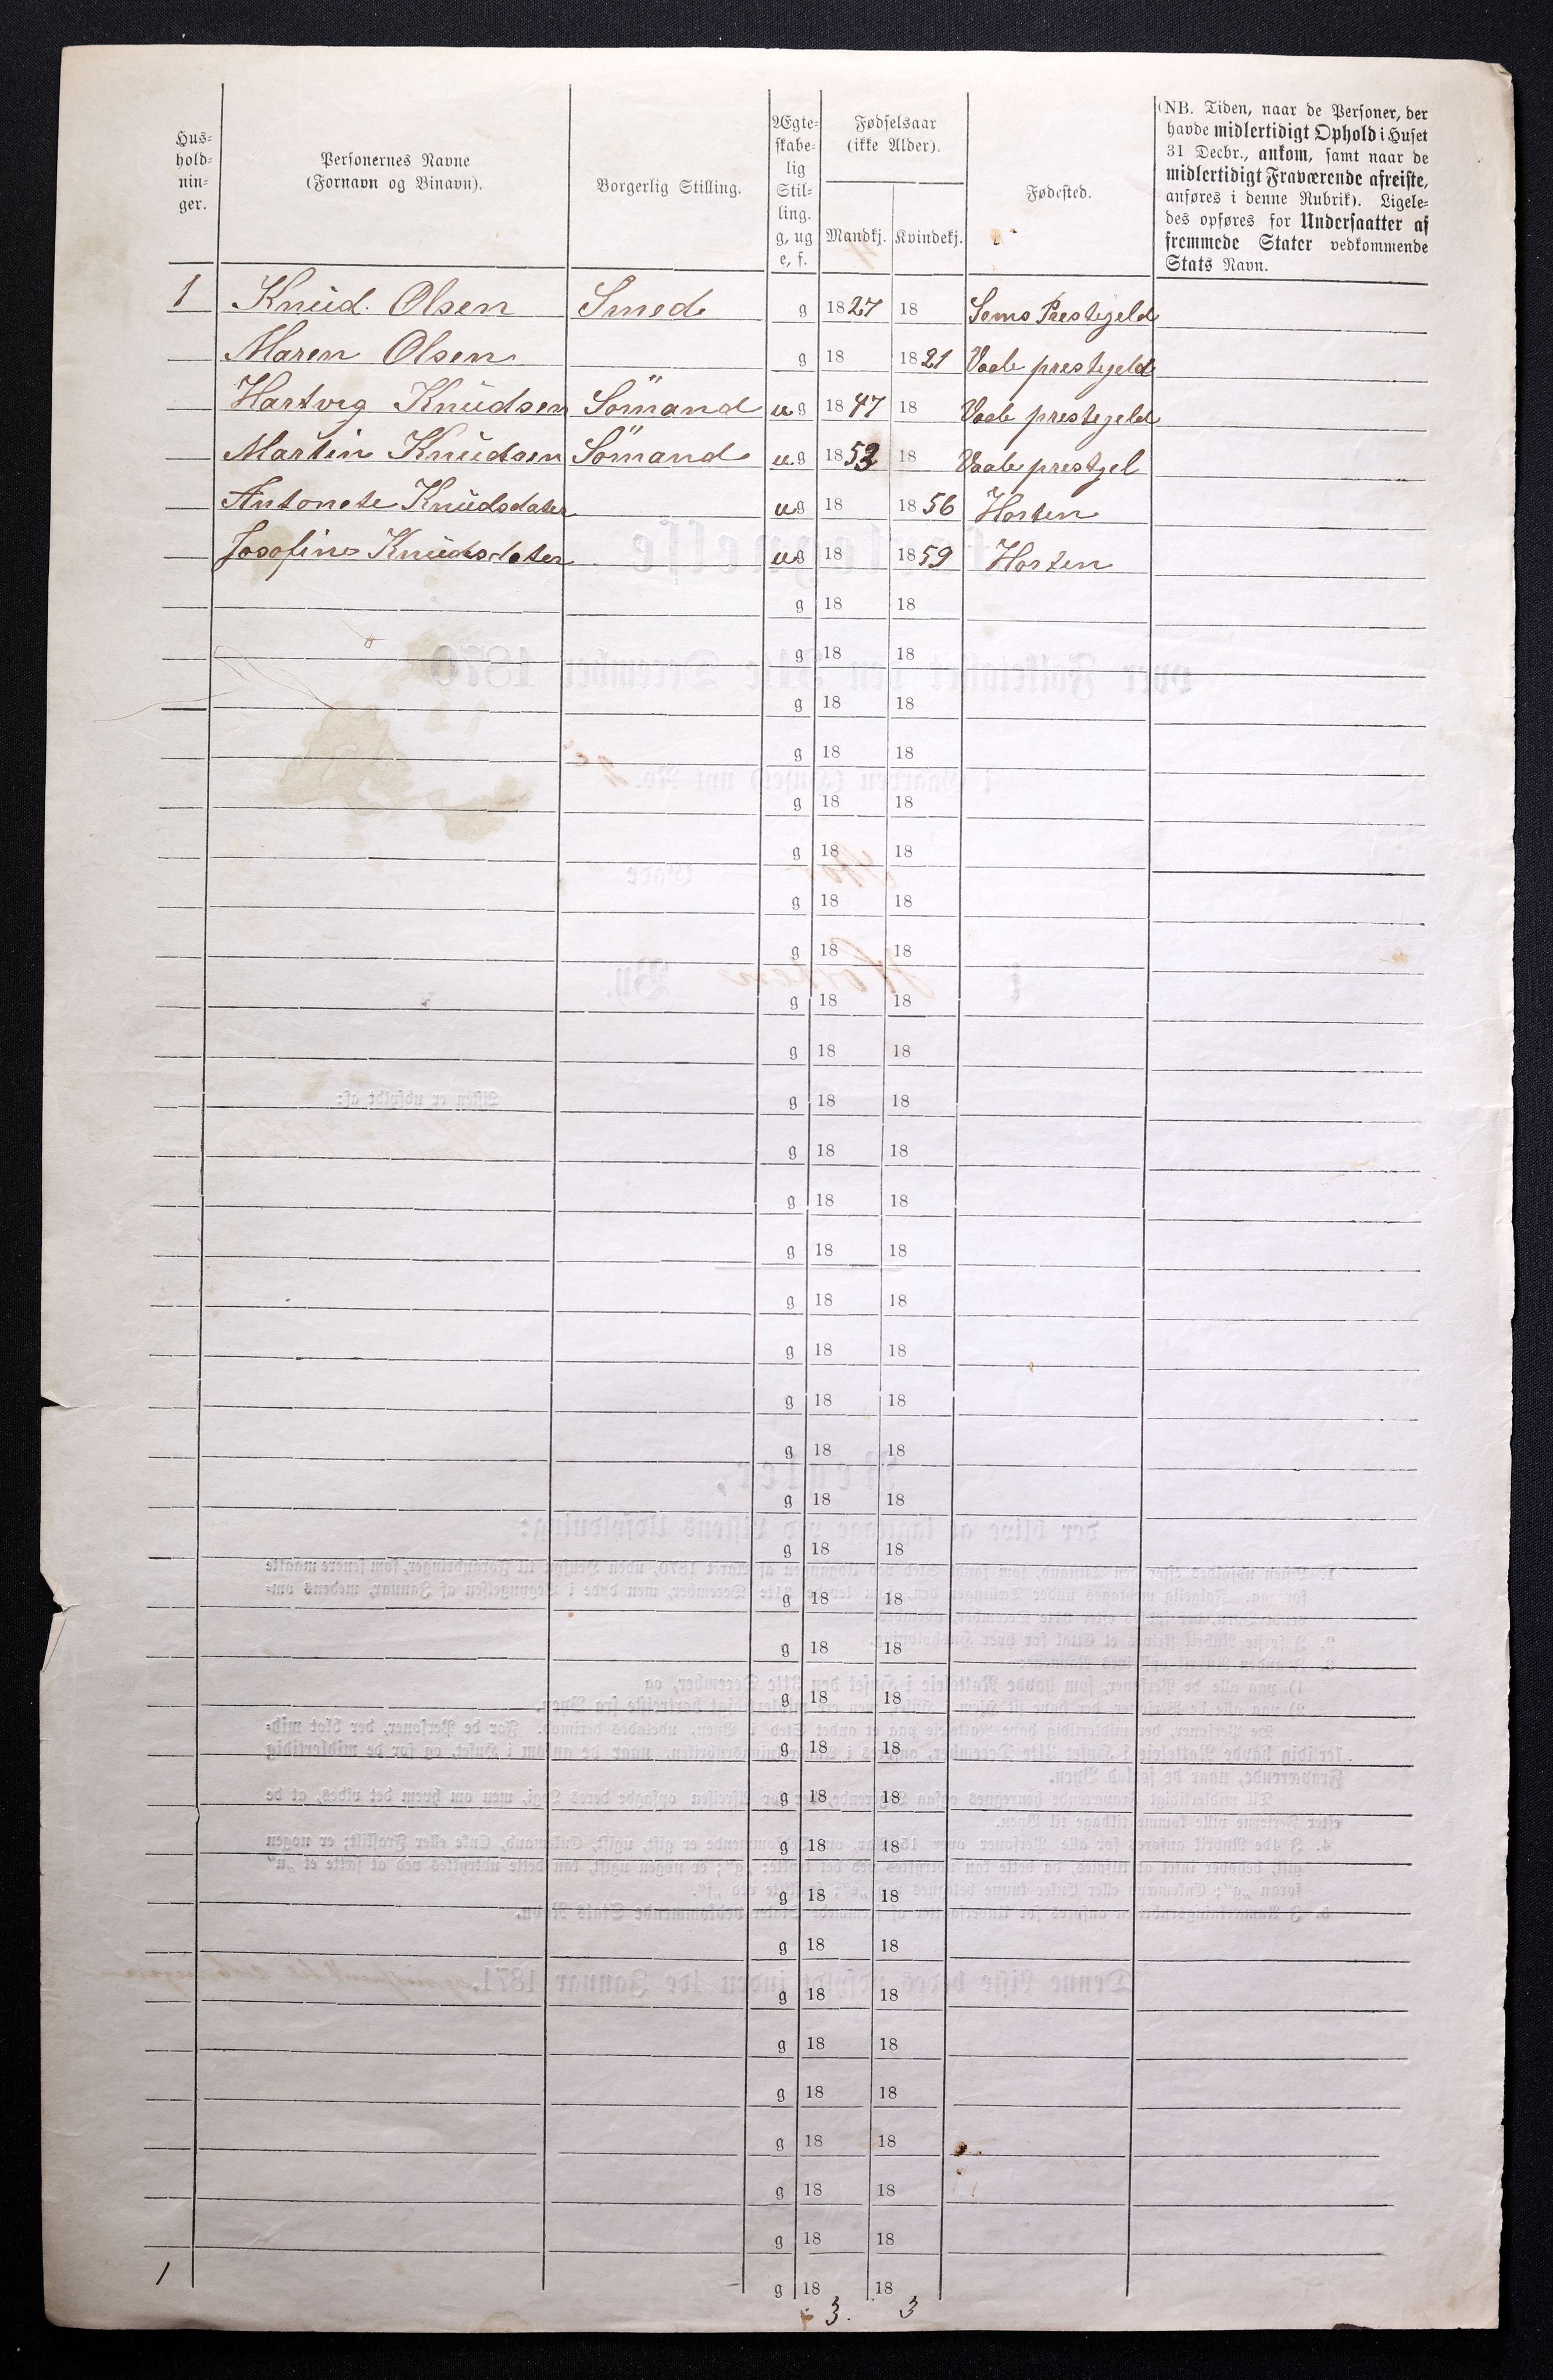 Hus-
hold-
nin-
ger.
Personernes Navne
(Fornavn og Binavn).
Borgerlig Stilling.
Ægte-
skabe-
lig
Stil-
ling.
g, ug
e, f.
Fødselsaar
(ikke Alder).
Mandkj. Kvindekj.
Fødested.
(NB. Tiden, naar de Personer, der
havde midlertidigt Ophold i Huset
31 Decbr., ankom, samt naar de
midlertidigt Fraværende afreiste,
anføres i denne Rubrik). Ligele-
des opføres for Undersaatter af
fremmede Stater vedkommende
Stats Navn.
1 Knud Olsen Smed g 1827 18 Sems Prestegeld
Maren Olsen g 18 1821 Vaale prestegeld
Hartvig Knudsen Sömand ug 1847 18 Vaale prestegeld
Martin Knudsen Sömand ug 1853 18 Vaale prestgel
Antonete Knudsdater ug 18 1856 Horten
Josefine Knudsdater ug 18 1859 Horten
g 18 18
g 18 18
g 18 18
g 18 18
g 18 18
g 18 18
g 18 18
g 18 18
g 18 18
g 18 18
g 18 18
g 18 18
g 18 18
g 18 18
g 18 18
g 18 18
g 18 18
g 18 18
g 18 18
g 18 18
g 18 18
g 18 18
g 18 18
g 18 18
g 18 18
g 18 18
g 18 18
g 18 18
g 18 18
g 18 18
g 18 18
g 18 18
g 18 18
g 18 18
g 18 18
1
3. 3